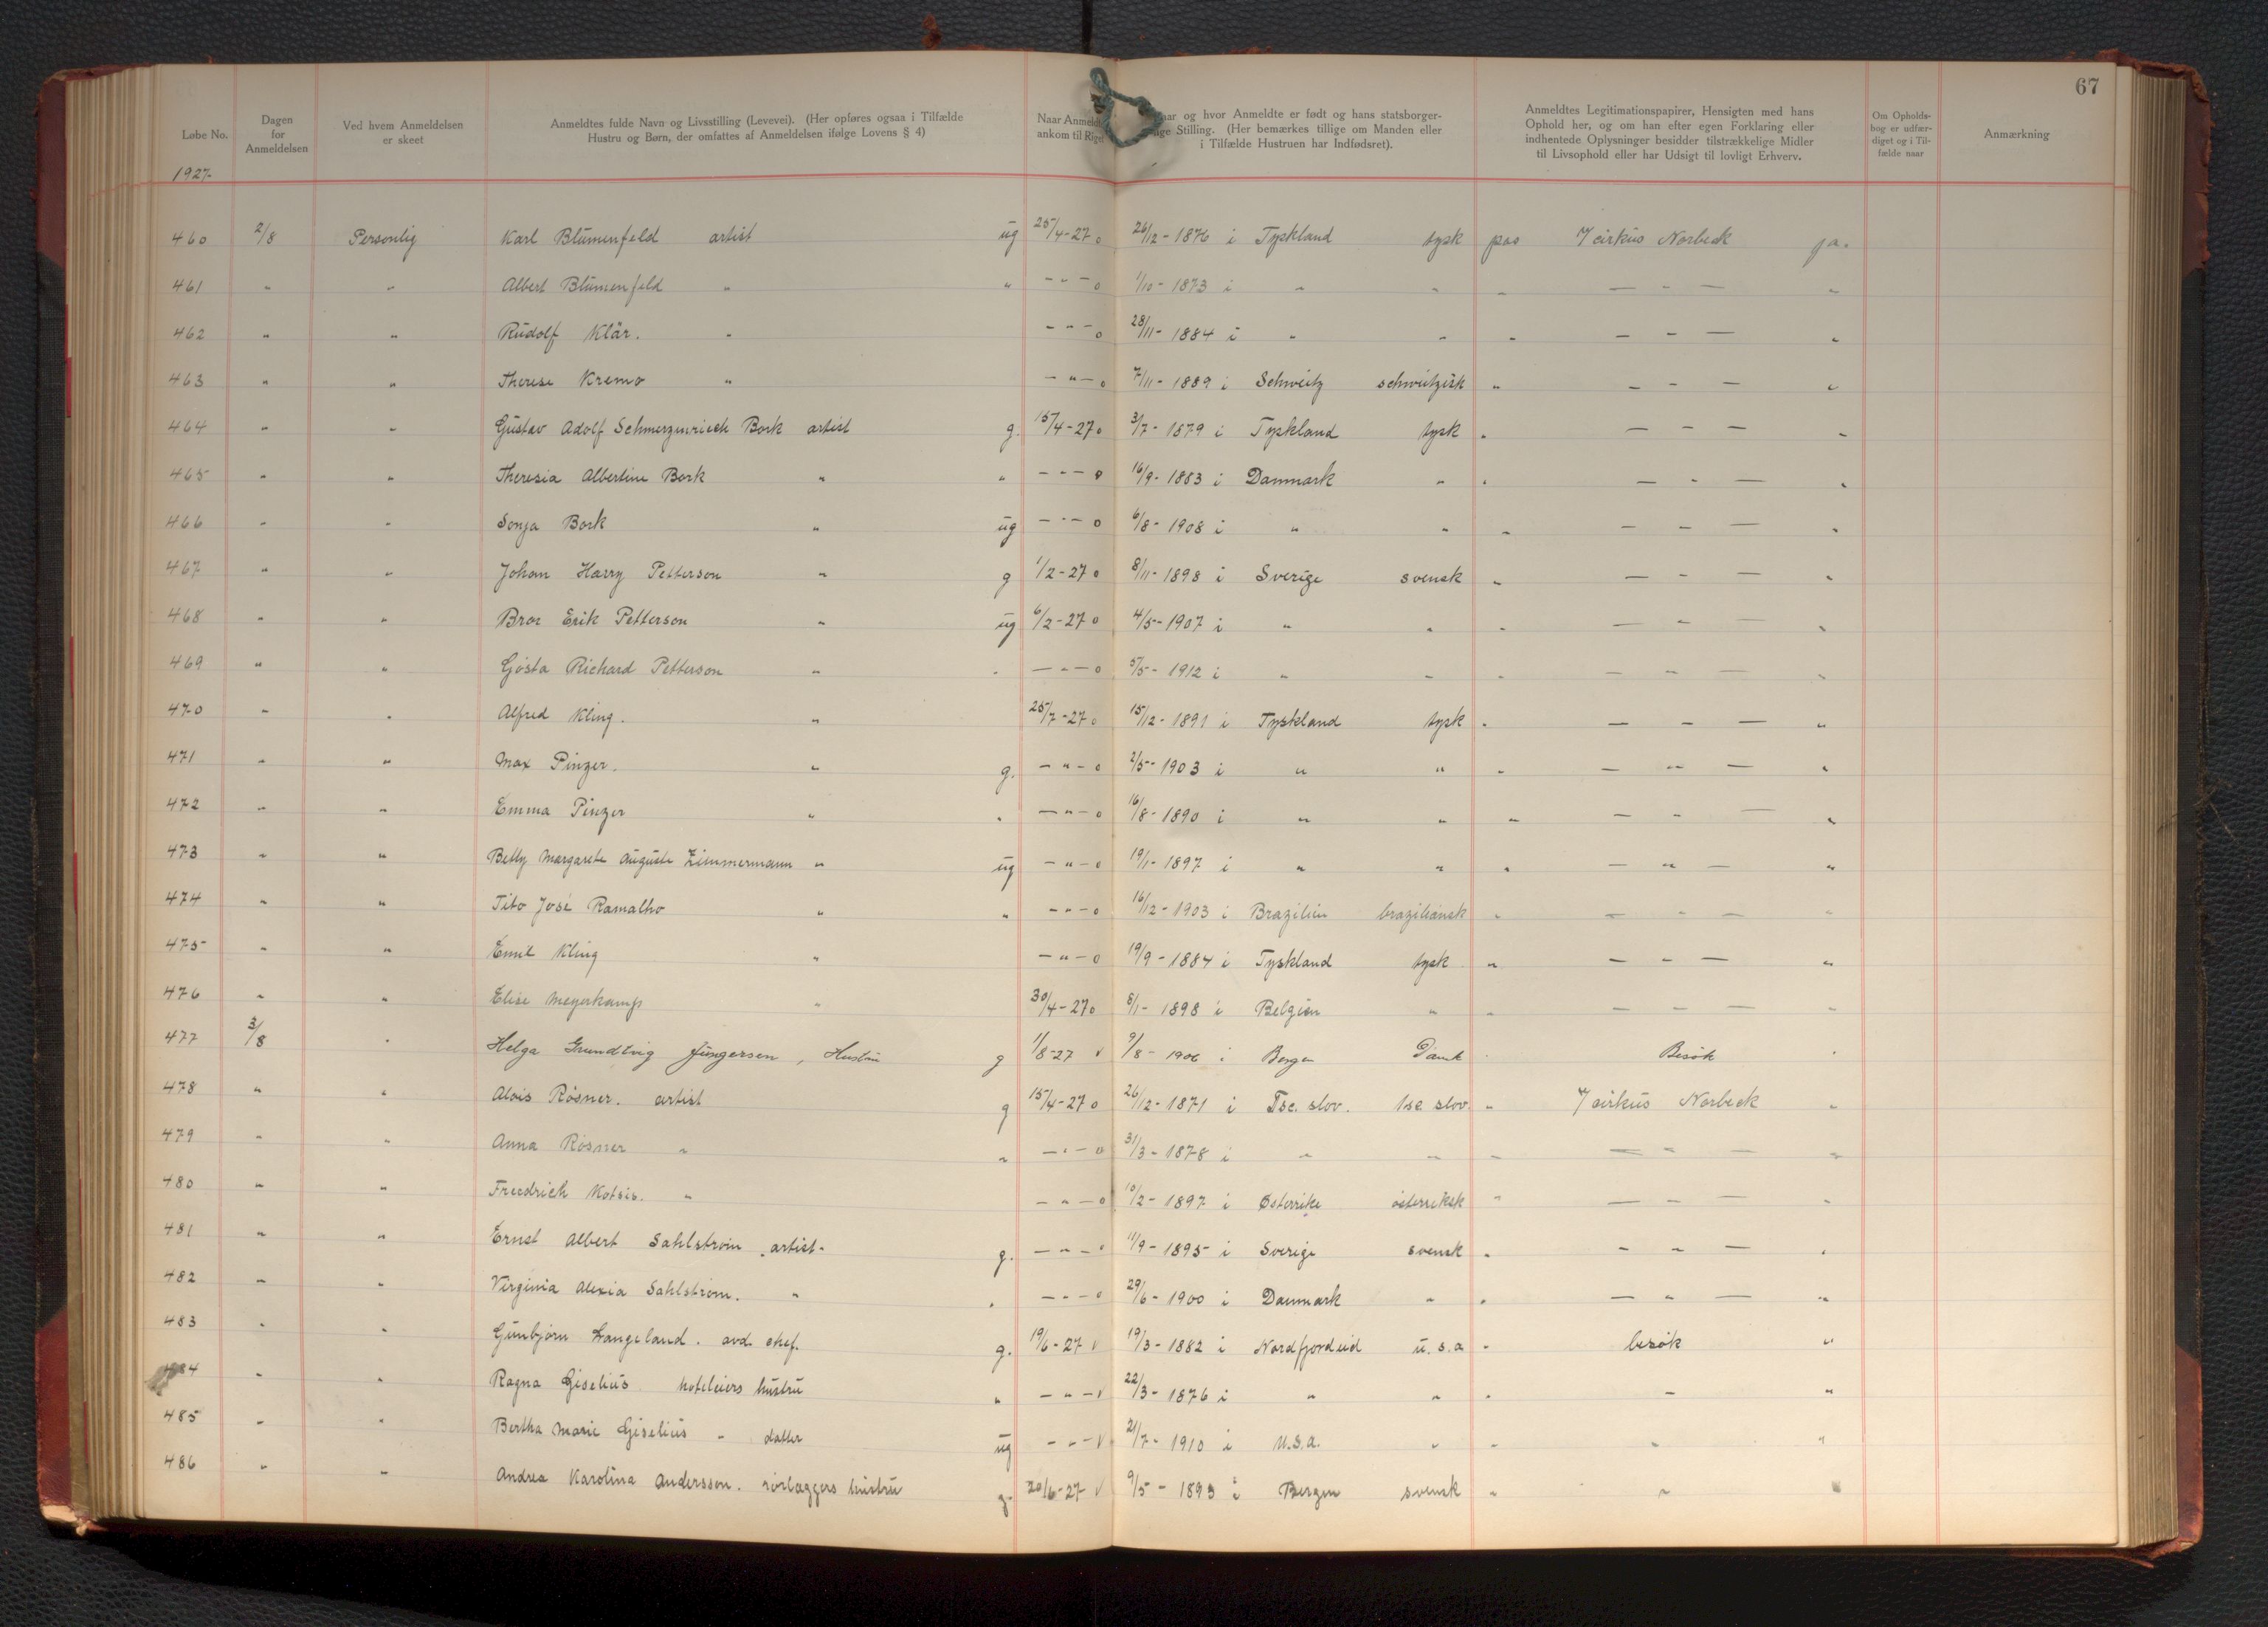 67
Løbe No.
Dagen for Anmeldelsen
Ved hvem Anmeldelsen er skeet
Anmeldtes fulde Navn og Livsstilling (Levevei). (Her opføres ogsaa i Tilfælde Hustru og Børn, der omfattes af Anmeldelsen ifølge Lovens § 4)
Naar Anmeld ankom til Rige
og hvor Anmeldte er født og hans statsborger- Stilling. (Her bemærkes tillige om Manden eller i Tilfælde Hustruen har Indfødsret).
Anmeldtes Legitimationspapirer, Hensigten med hans Ophold her, og om han efter egen Forklaring eller indhentede Oplysninger besidder tilstrækkelige Midler til Livsophold eller har Udsigt til lovligt Erhverv.
Om Opholds- bog er udfær- diget og i Til- fælde naar
Anmærkning
1927
460 2/8 Personlig Karl Blumenfeld artist ug 25/4-27 o 26/12-1876 i Tyskland tysk pas I cirkus Norbeck ja.
461 " " Albert Blumenfeld " " - " - o 1/10-1873 i " " " - " - "
462 " " Rudolf Klär. " - " - o 28/11-1884 i " " " - " - "
463 " " Therese Kremo " - " - o 7/11-1889 i Schweitz schweitzisk " - " - "
464 " " Gustav Adolf Schmerzenreich Bork artist g. 15/4-27 o 3/7-1879 i Tyskland tysk " - " - "
465 " " Theresia Albertine Bork " " - " - o 16/9-1883 i Danmark " " - " - "
466 " " Sonja Bork " ug - " - o 6/8-1908 i " " " - " - "
467 " " Johan Harry Petterson " g 1/2-27 o 8/11-1898 i Sverige svensk " - " - "
468 " " Bror Erik Petterson " ug 6/2-27 o 4/5-1907 i " " " - " - "
469 " " Gjøsta Richard Petterson " " - " - o 5/5-1912 i " " " - " - "
470 " " Alfred Kling. " 25/7-27 o 15/12-1891 i Tyskland tysk " - " - "
471 " " Max Pinzer. " g. - " - o 2/5-1903 i " " " - " - "
472 " " Emma Pinzer " " - " - o 16/8-1890 i " " " - " - "
473 " " Betty Margarete Auguste Zimmermann " ug - " - o 19/1-1897 i " " " - " - "
474 " " Tito José Ramalho " " - " - o 16/12-1903 i Brazilien braziliansk " - " - "
475 " " Emil Kling " - " - o 19/9-1884 i Tyskland tysk " - " - "
476 " " Elise Meyerkamp " 30/4-27 o 8/1-1898 i Belgien " " - " - "
477 3/8 " Helga Grundtvig Jungersen, Hustru g 1/8-27 v 9/8-1906 i Bergen Dansk " Besök "
478 " " Alois Rösner. artist g 15/4-27 o 26/12-1871 i Tsc. slov. tsc slov. " I cirkus Norbeck "
479 " " Anna Rösner " " - " - o 31/3-1878 i " " " - " - "
480 " " Freedrich Kotsis. " - " - o 10/2-1897 i Østerrike østerriksk " - " - "
481 " " Ernst Albert Sahlström artist. g. - " - o 11/9-1895 i Sverige svensk " - " - "
482 " " Virginia Alexia Sahlström. " " - " - o 29/6-1900 i Danmark " " - " - "
483 " " Gunbjørn Langeland. avd. chef. g. 19/6-27 v 19/3-1882 i Nordfjordeid u.s.a " besøk "
484 " " Ragna Giselius hoteleiers hustru " - " - v 22/3-1876 i " " " - "
485 " " Bertha Marie Giselius " datter ug - " - v 21/7-1910 i U.S.A. " " " "
486 " " Andrea Karolina Andersson. rørlæggers hustru g. 20/6-27 v 9/5-1893 i Bergen svensk " " "